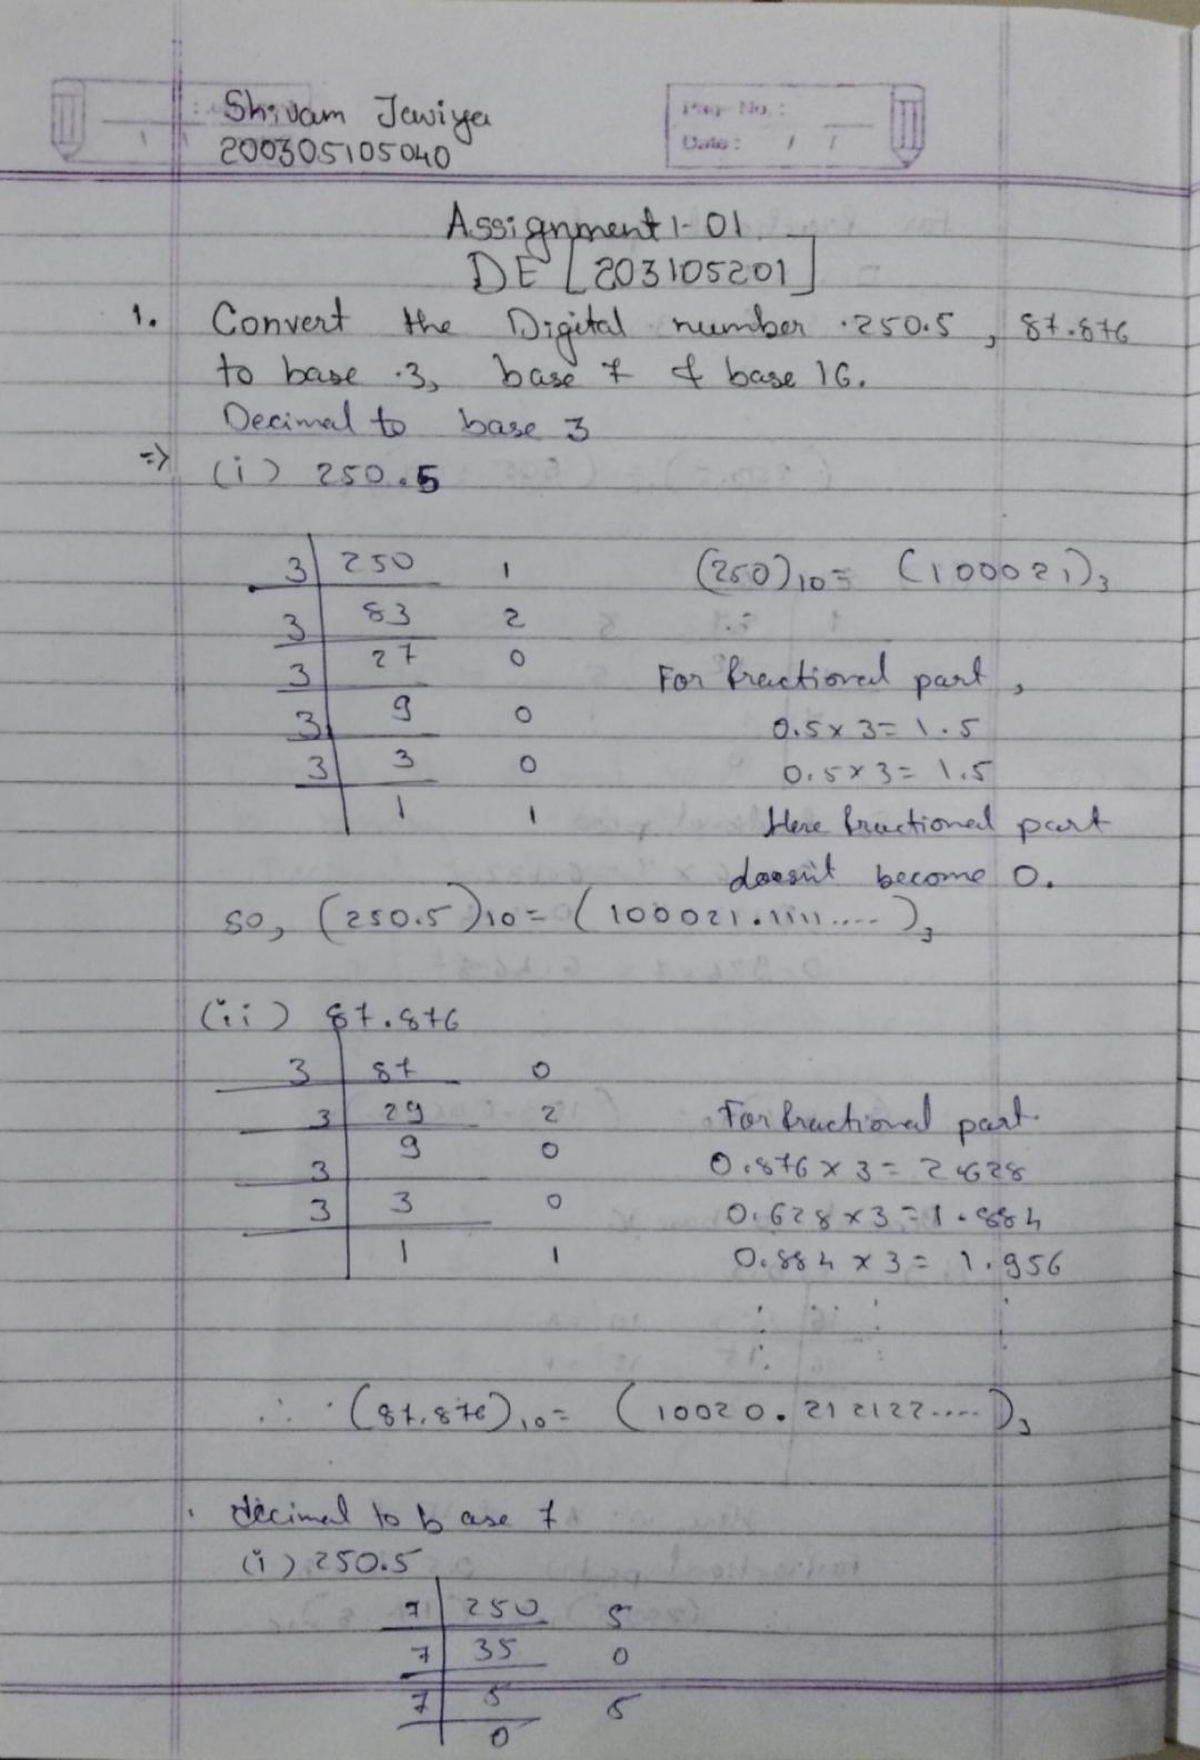 Shivam Javiya
200305105040
Page No.:
Date: / /
Assignment 1-01
DE [203105201]
1. Convert the Digital number .250.5, 87.876
to base .3, base 7 & base 16.
Decimal to base 3
=> (i) 250.5
3 250 1 (250)10 = (100021)3
3 83 2
3 27 0 For fractional part,
3 9 0 0.5 x 3 = 1.5
3 3 0 0.5 x 3 = 1.5
1 1 Here fractional part
doesn't become 0.
so, (250.5)10 = (100021.1111....)3
(ii) 87.876
3 87 0
3 29 2 For fractional part.
3 9 0 0.876 x 3 = 2.628
3 3 0 0.628 x 3 = 1.884
1 1 0.884 x 3 = 1.956
∴ (87.876)10 = (10020.212122....)3
. decimal to base 7
(i) 250.5
7 250 5
7 35 0
7 5 5
0